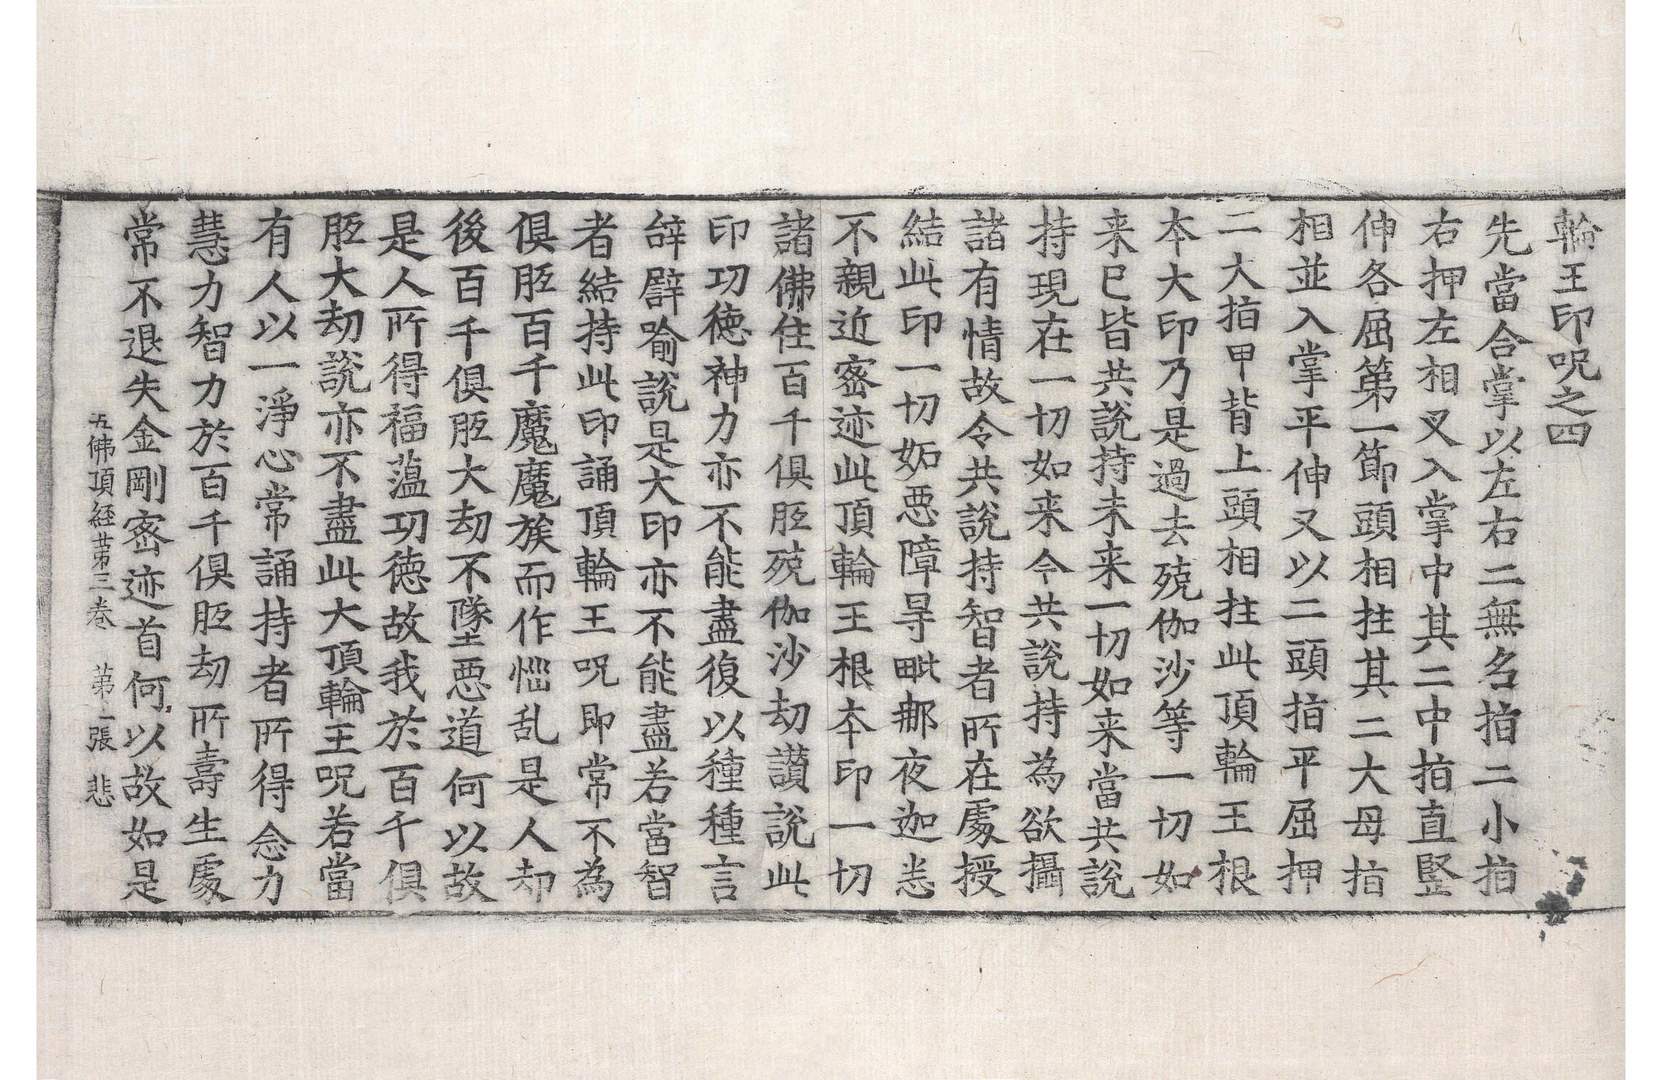 輪王印呪之四
先當合掌以左右二無名指二小指
右押左相叉入掌中其二中指直竪
伸各屈第一節頭相拄其二大母指
相並入掌平伸又以二頭指平屈押
二大指甲背上頭相拄此頂輪王根
本大印乃是過去殑伽沙等一切如
来已皆共說持未来一切如来當共說
持現在一切如来今共說持為欲攝
諸有情故令共說持智者所在處授
結此印一切妬惡障㝵毗那夜迦恙
不親近密迹此頂輪王根本印一切
諸佛住百千俱胝殑伽沙劫讃說此
印功德神力亦不能盡復以種種言
辝譬喻說是大印亦不能盡若當智
者結持此印誦頂輪王呪即常不為
俱胝百千魔魔族而作惱乱是人却
後百千俱胝大劫不墮惡道何以故
是人所得福蕰功德故我於百千俱
胝大劫說亦不盡此大頂輪王呪若當
有人以一淨心常誦持者所得念力
慧力智力於百千俱胝劫所壽生處
常不退失金剛密迹首何以故如是
五佛頂経苐三卷　苐一張　悲